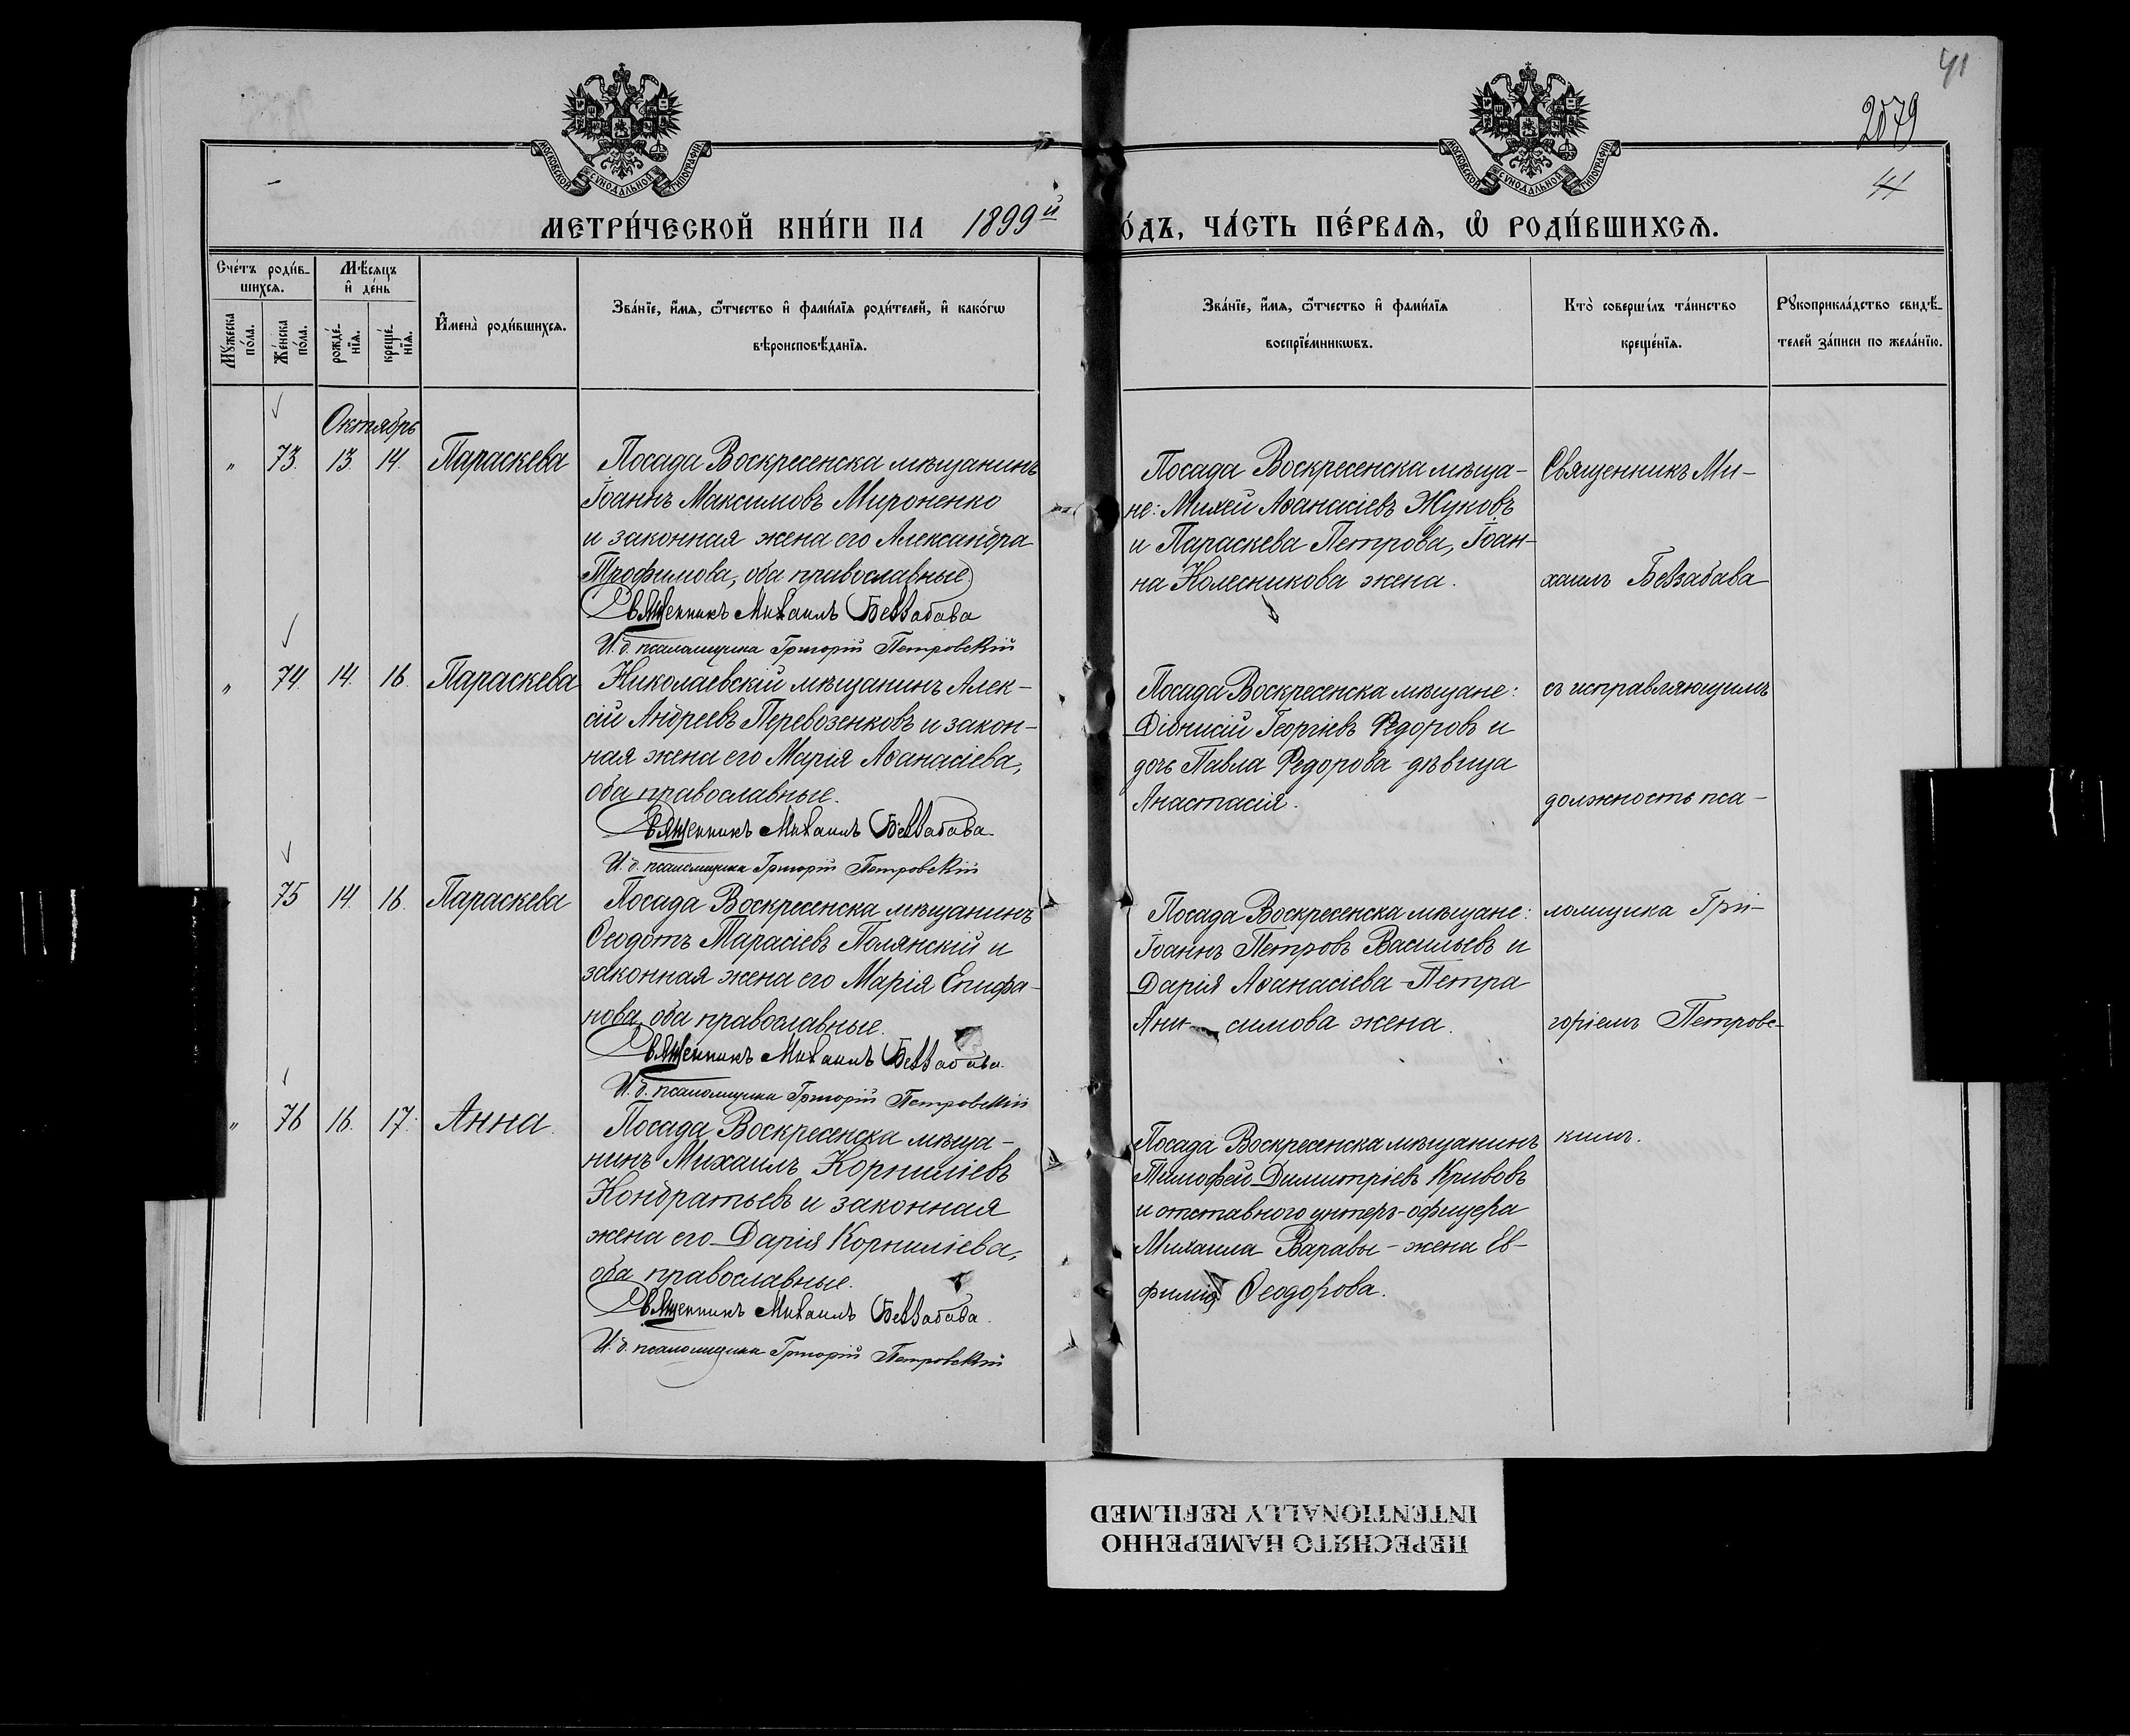 41
2079
41
МОСКОВСКОЙ СѴНОДАЛЬНОЙ ТИПОГРАФІИ
МОСКОВСКОЙ СѴНОДАЛЬНОЙ ТИПОГРАФІИ
МЕТРИ́ЧЕСКОЙ КНИ́ГИ НА 1899й
О́ДЪ, ЧА́СТЬ ПЕ́РВАѦ, Ѡ҆ РОДИ́ВШИХСѦ.
Сче́тъ роди́в-
шихсѧ.
Мꙋ́жеска
по́ла.
Же́нска
по́ла.
Мѣ́сѧцъ
и҆ де́нь
рожде́-
нїѧ.
креще́-
нїѧ.
И҆мена̀ роди́вшихсѧ.
Зва́нїе, и҆́мѧ, ѻ҆́тчество и҆ фами́лїѧ роди́телей, и҆ како́гѡ
вѣроисповѣ́данїѧ.
Зва́нїе, и҆́мѧ, ѻ҆́тчество и҆ фами́лїѧ
воспрїе́мникѡвъ.
Кто̀ соверши́лъ та́инство
креще́нїѧ.
Рꙋкоприкла́дство свидѣ́-
телей за́писи по жела́нїю.
Октябрь
" 73. 13. 14. Параскева
Посада Воскресенска мѣщанинъ
Іоаннъ Максимовъ Мироненко
и законная жена его Александра
Трофимова, оба православные
Священникъ Михаилъ Беззабава
И. д. псаломщика Григорій Петровскій
Посада Воскресенска мѣща-
не: Михей Аѳанасіевъ Жуковъ
и Параскева Петрова, Іоан-
на Колесникова жена.
" 74. 14. 16. Параскева
Николаевскій мѣщанинъ Алек-
сій Андреевъ Перевозенковъ и закон-
ная жена его Марія Аѳанасіева,
оба православные.
Священникъ Михаилъ Беззабава
И. д. псаломщика Григорій Петровскій
Посада Воскресенска мѣщане:
Діонисій Георгіевъ Ѳедоровъ и
дочь Павла Ѳедорова дѣвица
Анастасія.
75 14. 16. Параскева
Посада Воскресенска мѣщанинъ
Ѳеодотъ Тарасіевъ Полянскій и
законная жена его Марія Епифа-
нова, оба православные.
Священникъ Михаилъ Беззабава.
И. д. псаломщика Григорій Петровскій
Посада Воскресенска мѣщане:
Іоаннъ Петровъ Васильевъ и
Дарія Аѳанасіева - Петра
Ани- симова жена.
" 76 16. 17. Анна.
Посада Воскресенска мѣща-
нинъ Михаилъ Корниліевъ
Кондратьевъ и законная
жена его Дарія Корниліева,
оба православные.
Священникъ Михаилъ Беззабава.
И. д. псаломщика Григорій Петровскій
Посада Воскресенска мѣщанинъ
Тимофей Димитріевъ Кривовъ
и отставного унтеръ-офицера
Михаила Варавы - жена Ев-
фимія Ѳеодорова.
Священникъ Ми-
хаилъ Беззабава
съ исправляющимъ
должность пса-
ломщика Гри-
горіемъ Петровс-
кимъ.
ПЕРЕСНЯТО НАМЕРЕННО
INTENTIONALLY REFILMED